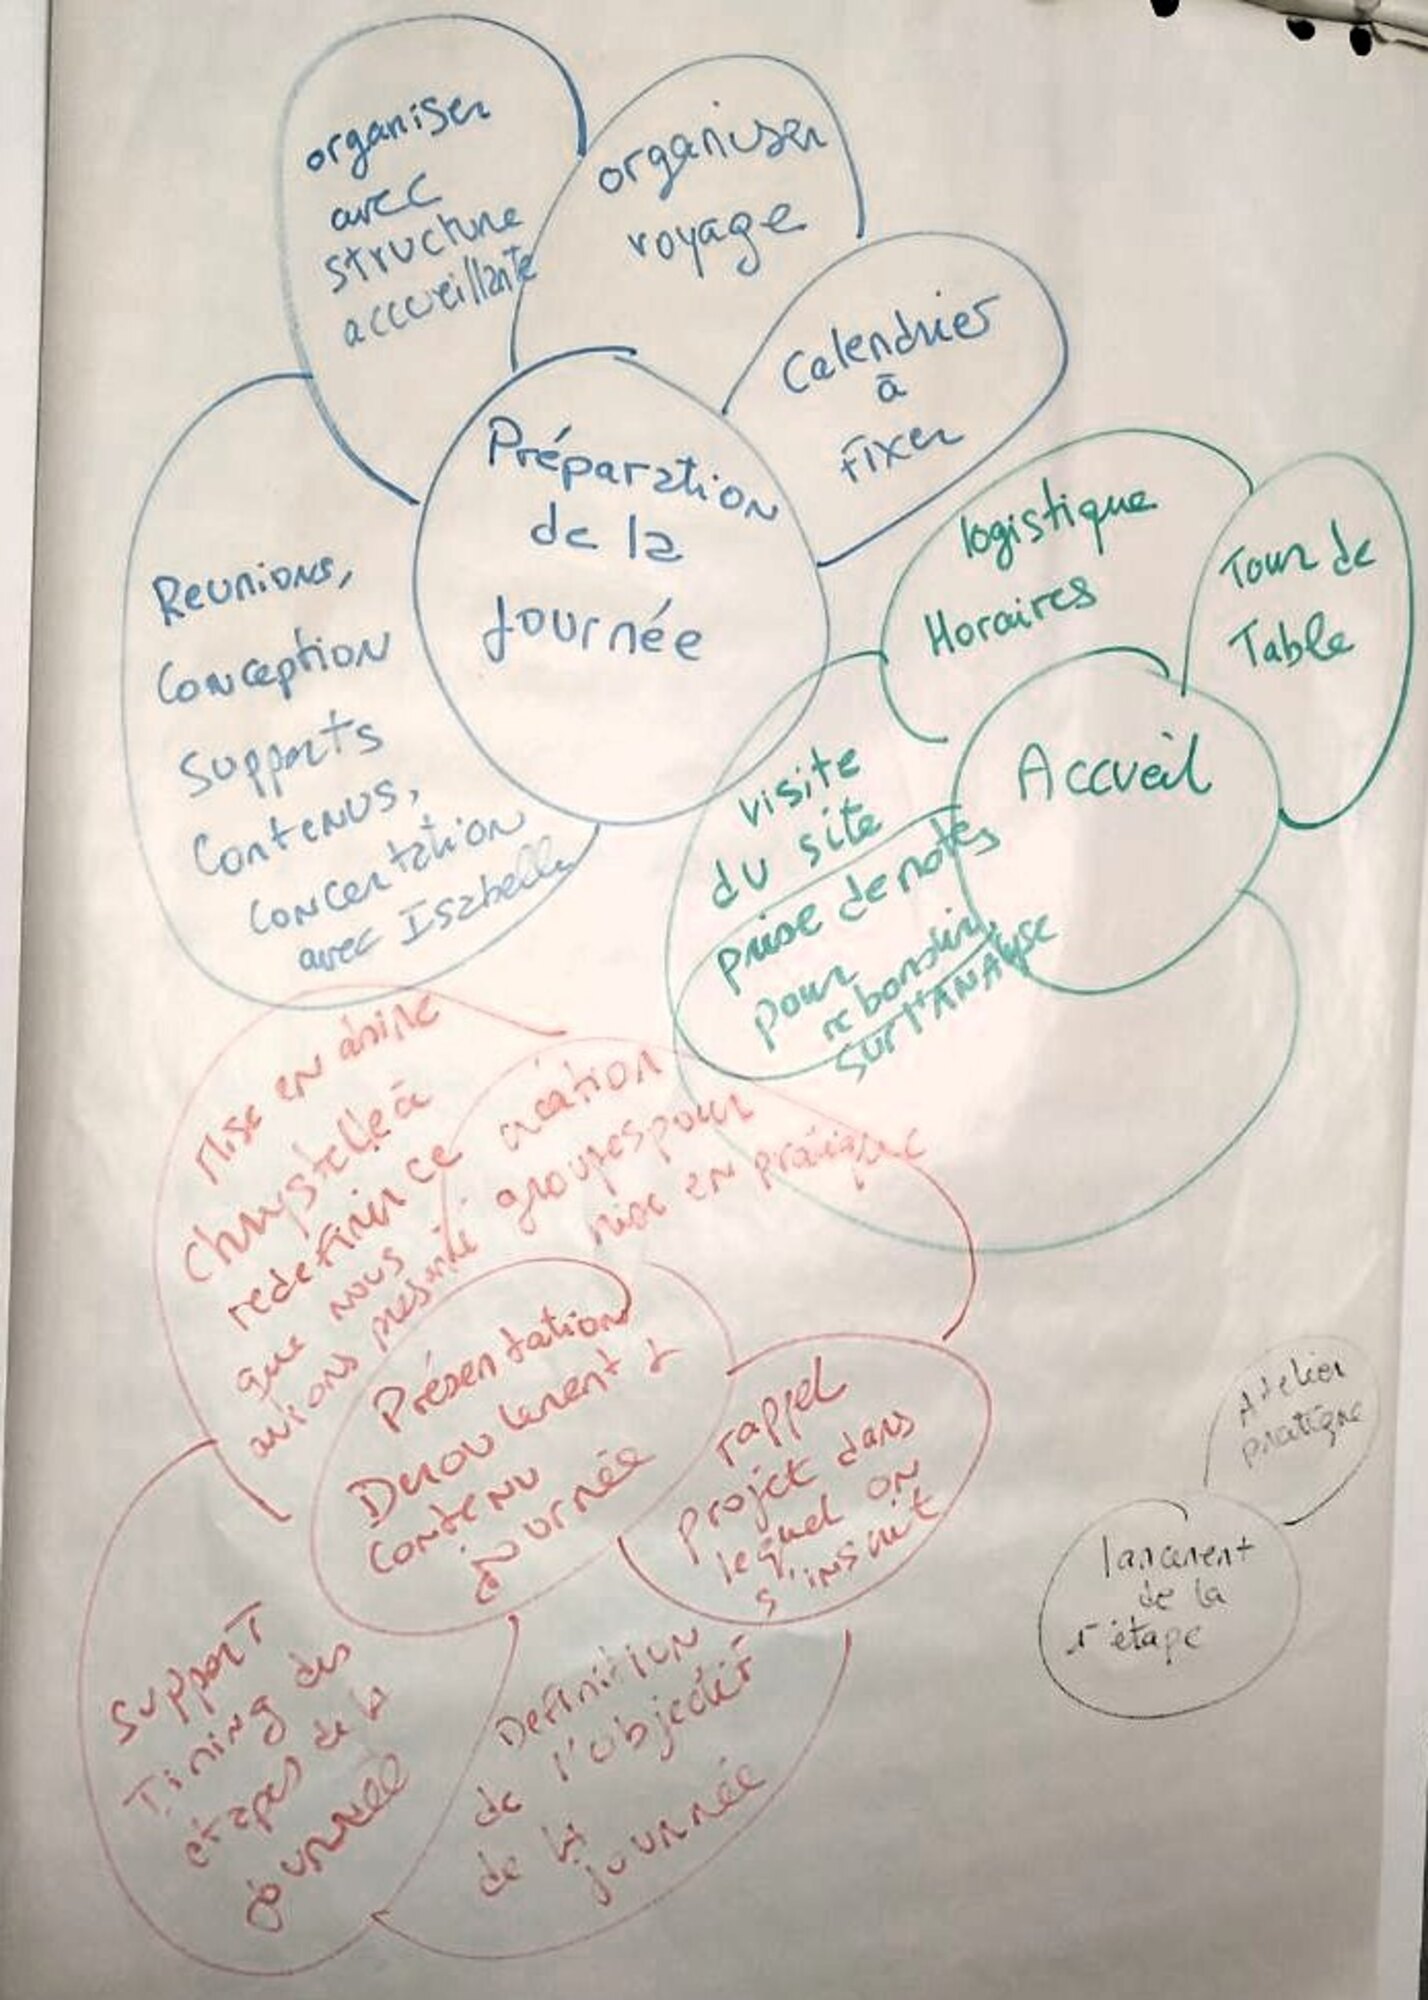 organiser
avec
structure
accueillante
organiser
voyage
Calendrier
à
fixer
Préparation
de la
journée
Reunions,
Conception
Supports
Contenus,
concertation
avec Isabelle
logistique
Horaires
Tour de
Table
Accueil
visite
du site
prise de notes
pour
rebondir
sur l'ANAlyse
Mise en
Chrystelle à
redefinir ce
que nous
avions présenté
création
groupes pour
mise en pratique
Présentation
Deroulement +
contenu
journée
rappel
projet dans
lequel on
s'inscrit
Support
Timing des
etapes de la
journée
Definition
de l'objectif
de la
journée
Atelier
pratique
lancement
de la
1° étape